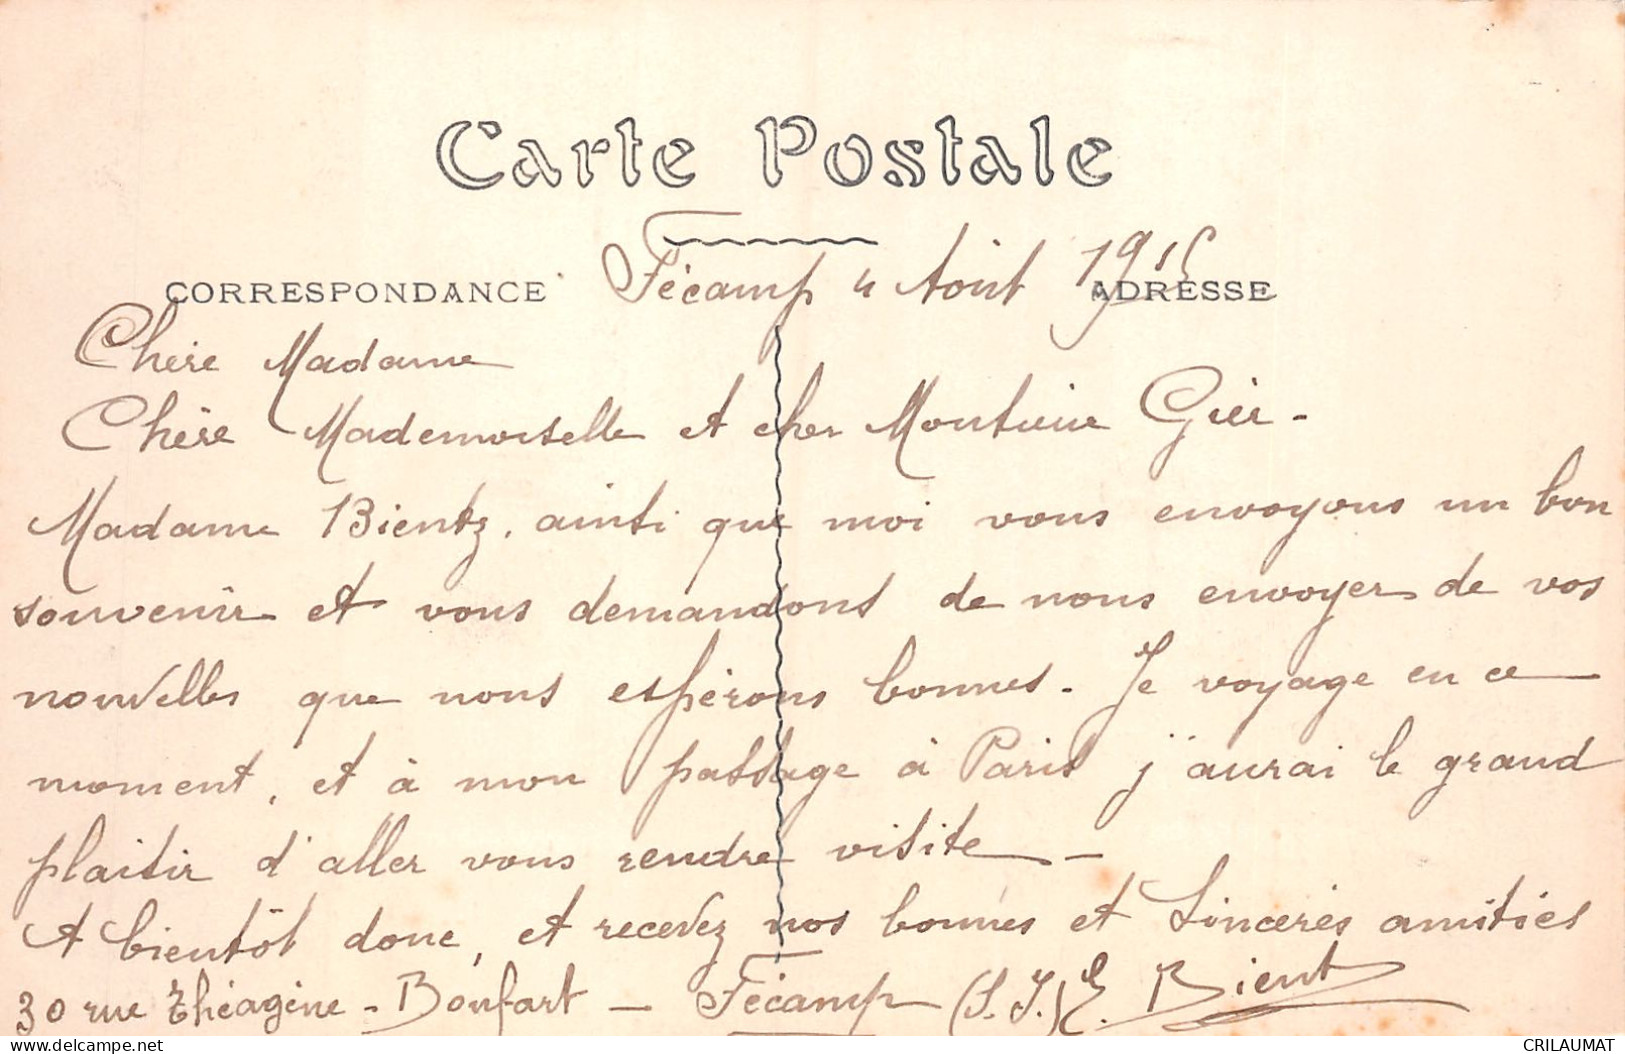 Carte Postale
Fécamp 4 Août 1915
CORRESPONDANCE
ADRESSE
Chère Madame
Chère Mademoiselle et cher Monsieur Gier -
Madame Bientz, ainsi que moi vous envoyons un bon
souvenir et vous demandons de nous envoyer de vos
nouvelles que nous espérons bonnes. Je voyage en ce
moment, et à mon passage à Paris j'aurai le grand
plaisir d'aller vous rendre visite -
A bientôt donc, et recevez nos bonnes et sincères amitiés
30 rue Théagène - Boufart - Fécamp (S. I.) E. Bientz
delcampe.net
CRILAUMAT